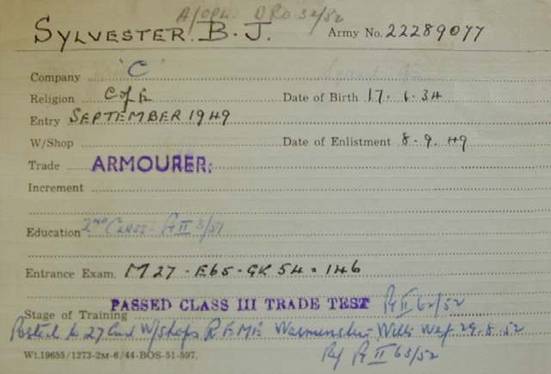 A/CPL. DRO 34/52
SYLVESTER. B. J. Army No. 22289077
Company 'C'
Religion C of E Date of Birth 17. 6. 34
Entry SEPTEMBER 1949
W/Shop Date of Enlistment 8. 9. 49
Trade ARMOURER.
Increment
Education 2ND CLASS - Pt II 3/51
Entrance Exam. M27 - E65 - GK 54 = 146
PASSED CLASS III TRADE TEST Pt II 62/52
Stage of Training
Posted to 27 Cmd W/Shops R.E.M.E. Warminster - Wilts wef 29.8.52
Ref Pt II 63/52
Wt.19655/1273-2M-6/44-BOS-51-597.